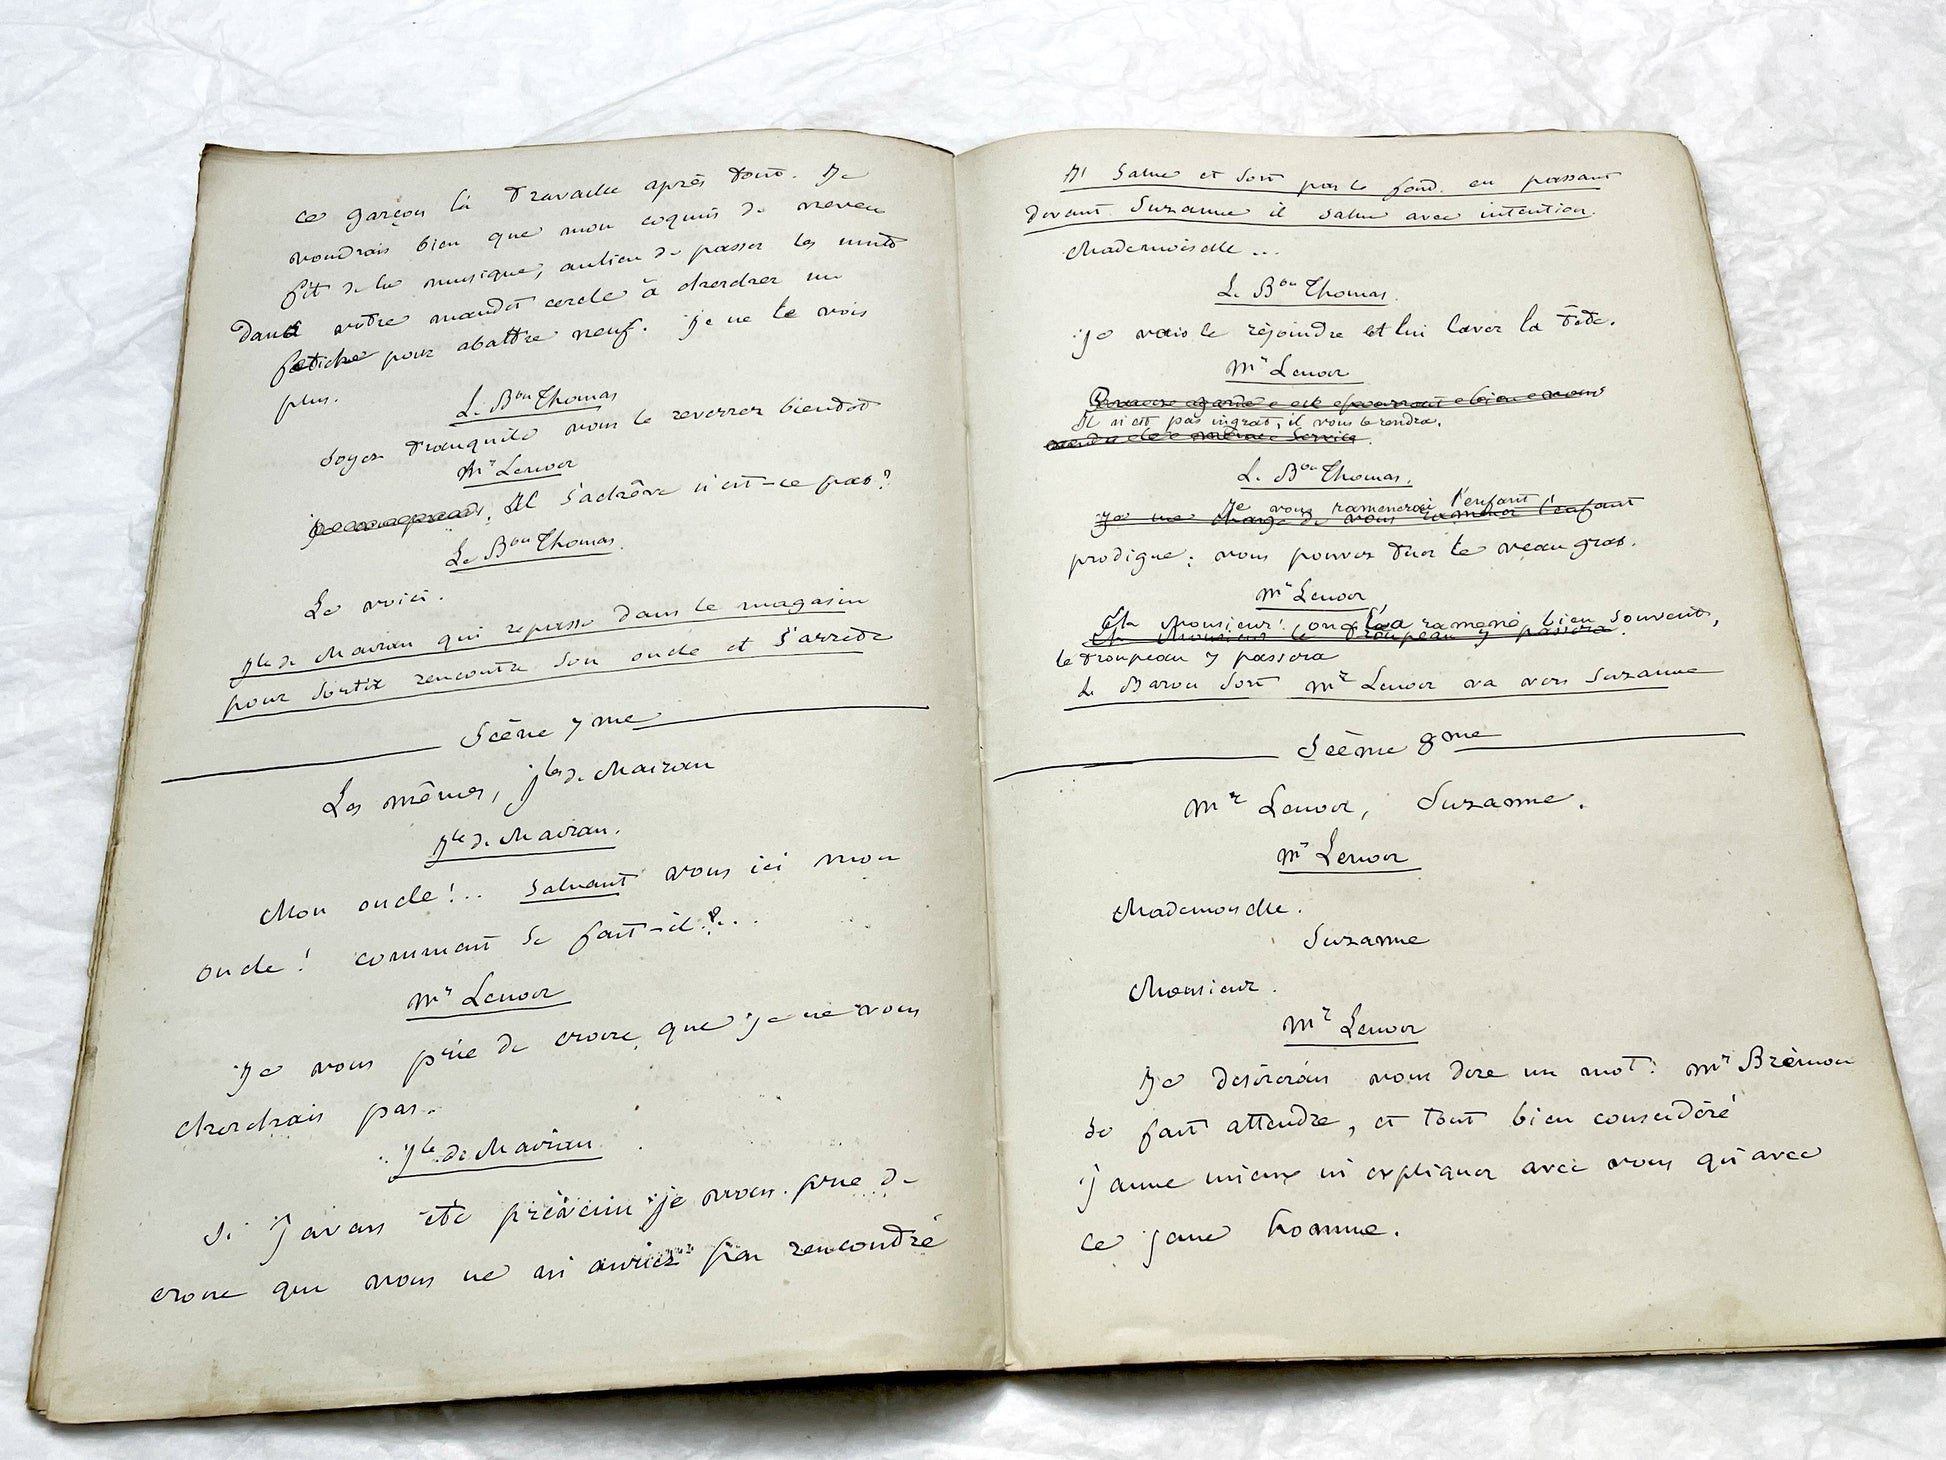 ce garçon là travaille après tout. Je
voudrais bien que mon coquin de neveu
fit de la musique, aulieu de passer les nuits
dans votre maudit cercle à chercher un
fétiche pour abattre neuf. Je ne le vois
plus.
Le Bon Thomas
Soyez tranquile vous le reverrez bientot
Mr Lenoir
Il s'achève n'est-ce pas?
Le Bon Thomas.
Le voici.
Jles de Mairan qui repasse dans le magasin
pour sortir rencontre son oncle et s'arrête
Scène 7me
Les mêmes, Jles de Mairan
Jles de Mairan.
Mon oncle!.. saluant vous ici mon
oncle! comment se fait-il?...
Mr Lenoir
Je vous prie de croire que je ne vous
cherchais pas.
Jles de Mairan
Si j'avais été prévenu je vous prie de
croire que vous ne m'auriez pas rencontré
Il salue et sort par le fond. en passant
devant Suzanne il salue avec intention.
Mademoiselle...
Le Bon Thomas.
Je vais le rejoindre et lui laver la tête.
Mr Lenoir
Il n'est pas ingrat, il vous le rendra.
rendre le même service.
Le Bon Thomas.
Je vous ramenerai l'enfant
Je me charge de vous ramener l'enfant
prodigue: vous pouvez tuer le veau gras.
Mr Lenoir
Eh monsieur! on l'a ramené bien souvent,
Eh Monsieur le troupeau y passera.
le troupeau y passera
Le Baron sort Mr Lenoir va vers Suzanne
Scème 8me
Mr Lenoir, Suzanne.
Mr Lenoir
Mademoiselle.
Suzanne
Monsieur.
Mr Lenoir
Je desirerais vous dire un mot: Mr Brémon
se fait attendre, et tout bien considéré
j'aime mieux m'expliquer avec vous qu'avec
ce jeune homme.